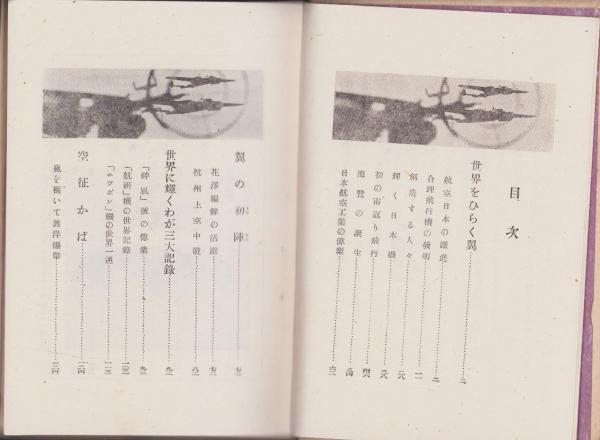 目次
世界をひらく翼
航空日本の躍進
合理飛行機の發明
創造する人々
輝く日本機
初の宙返り飛行
海鷲の誕生
日本航空工業の偉業
翼の初陣
花澤編隊の活躍
杭州上空中戰
世界に輝くわが三大記錄
「神風」號の偉業
「航研」機の世界記錄
「ニッポン」機の世界一週
空征かば
嵐を衝いて渡洋爆擊